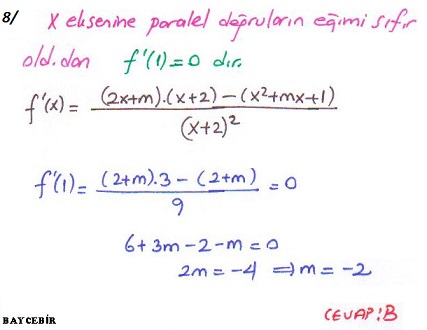 8/ X eksenine paralel doğruların eğimi sıfır
old.dan f'(1)=0 dır.
f'(x) = ((2x+m).(x+2) - (x²+mx+1)) / (x+2)²
f'(1) = ((2+m).3 - (2+m)) / 9 = 0
6+3m-2-m=0
2m = -4 ⇒ m = -2
CEVAP:B
BAYCEBİR